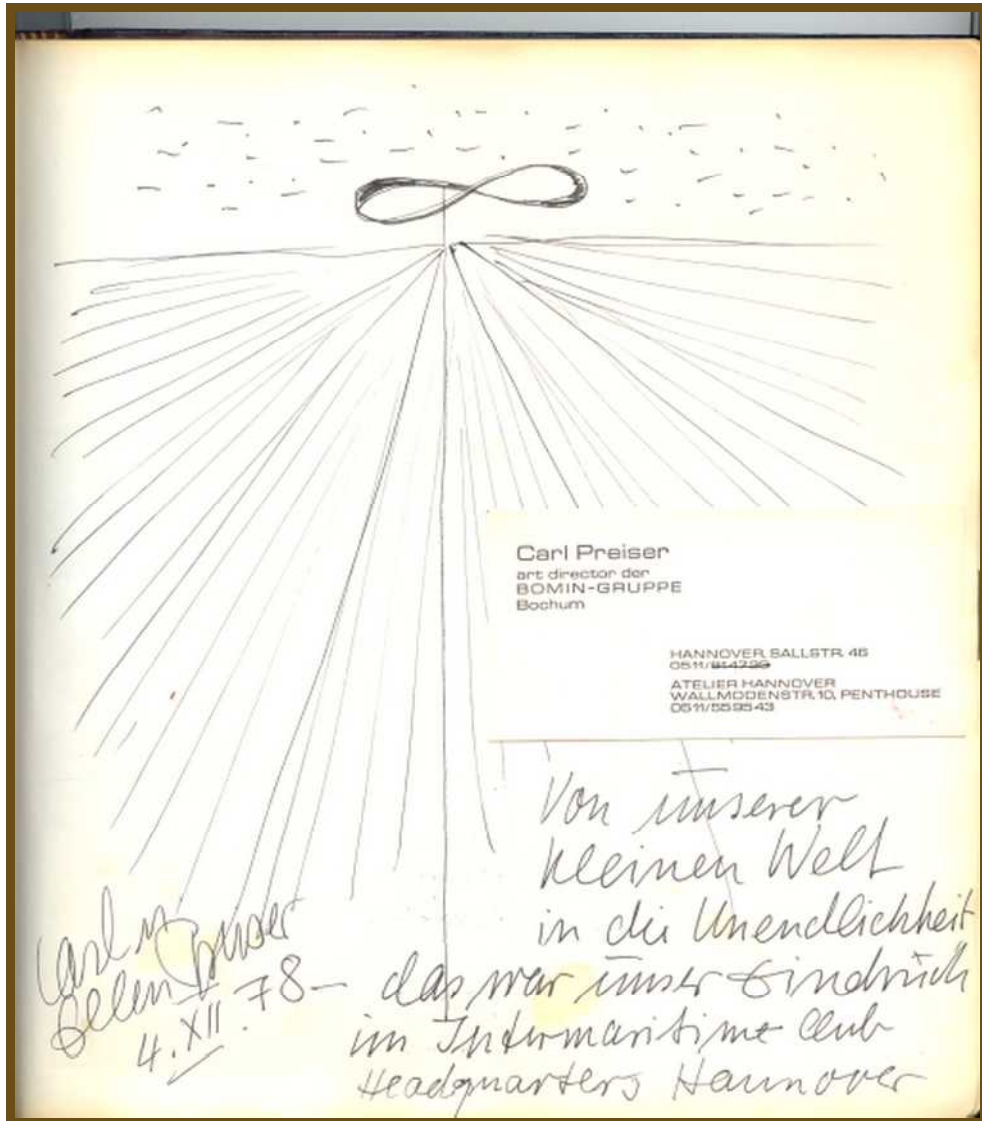 Carl Preiser
art director der
BOMIN-GRUPPE
Bochum
HANNOVER, SALLSTR. 46
0511/814739
ATELIER HANNOVER
WALLMODENSTR. 10, PENTHOUSE
0511/559543
Von unserer
kleinen Welt
in die Unendlichkeit
das war unser Eindruck
im Intermaritime Club
Headquarters Hannover
Carl u
Ellen Preiser
4. XII. 78